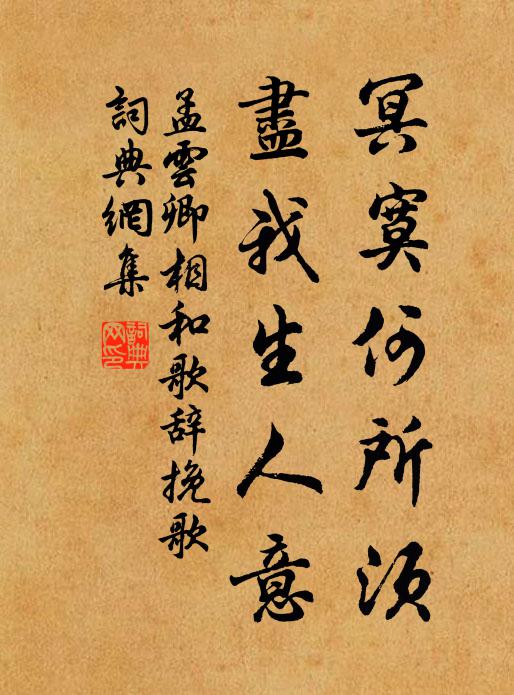 冥寞何所须
盡我生人意
孟雲卿相和歌辞挽歌
詞典網集
詞典
网印